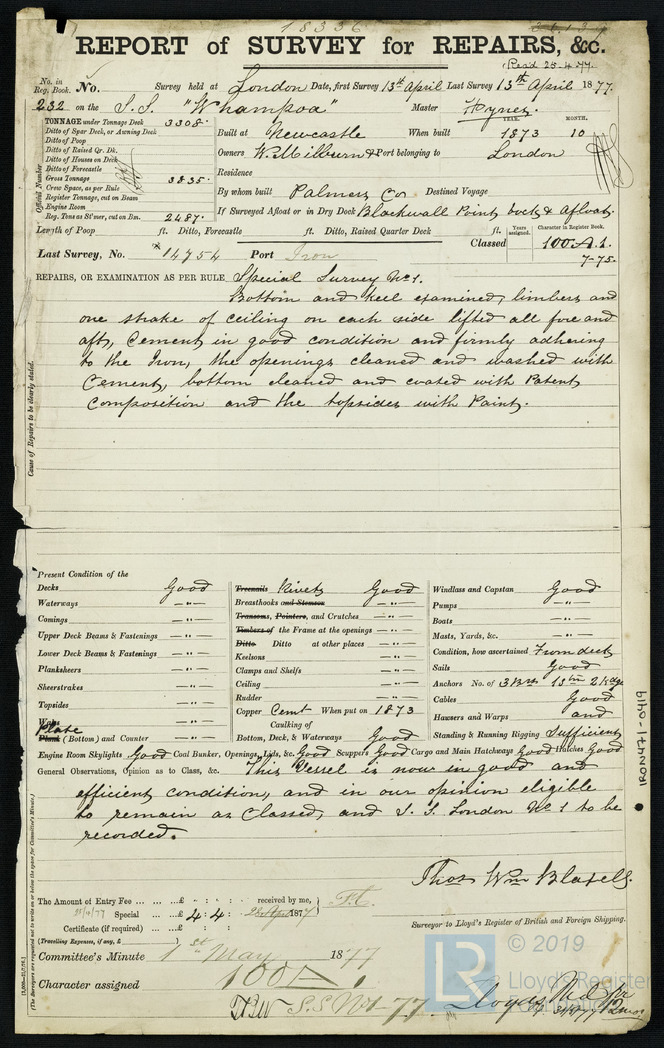 18336
REPORT of SURVEY for REPAIRS, &c.
Rec'd 25.4.77.
No. in Reg. Book. No. Survey held at London Date, first Survey 13th April Last Survey 13th April 1877.
232 on the S.S. "Whampoa" Master Hynes
TONNAGE under Tonnage Deck 3308.
YEAR. MONTH.
Ditto of Spar Deck, or Awning Deck
Built at Newcastle When built 1873 10
Ditto of Poop
Ditto of Raised Qr. Dk.
Owners W. Milburn & Port belonging to London
Ditto of Houses on Deck
Ditto of Forecastle
Residence
Gross Tonnage 3835.
Crew Space, as per Rule
By whom built Palmers Co Destined Voyage
Register Tonnage, cut on Beam
Engine Room
If Surveyed Afloat or in Dry Dock Blackwall Point dock & Afloat.
Reg. Tons as St'mer, cut on Bm. 2487.
Official Number
Length of Poop ft. Ditto, Forecastle ft. Ditto, Raised Quarter Deck ft.
Years assigned. Character in Register Book.
Classed 100.A.1.
7-75.
Last Survey, No. *14754 Port Iron
REPAIRS, OR EXAMINATION AS PER RULE Special Survey No 1.
Bottom and keel examined, limbers and
one strake of ceiling on each side lifted all fore and
aft, Cement in good condition and firmly adhering
to the Iron, the openings cleaned and washed with
Cement, bottom cleaned and coated with Patent
Composition and the topsides with Paint.
Cause of Repairs to be clearly stated.
Present Condition of the
Decks Good
Waterways - " -
Comings - " -
Upper Deck Beams & Fastenings - " -
Lower Deck Beams & Fastenings - " -
Planksheers - " -
Sheerstrakes - " -
Topsides - " -
Wales
Plate
Plank (Bottom) and Counter - " -
Treenails Rivets Good
Breasthooks and Stemson - " -
Transoms, Pointers, and Crutches - " -
Timbers of the Frame at the openings - " -
Ditto Ditto at other places - " -
Keelsons - " -
Clamps and Shelfs - " -
Ceiling - " -
Rudder - " -
Copper Cemt When put on 1873
Caulking of
Bottom, Deck, & Waterways Good
Windlass and Capstan Good
Pumps - " -
Boats - " -
Masts, Yards, &c. - " -
Condition, how ascertained From deck
Sails Good
Anchors No. of 3 Brs 1 stm 2 Kdgs
Cables Good
Hawsers and Warps and
Standing & Running Rigging Sufficient
Engine Room Skylights Good Coal Bunker, Openings, Lids, &c. Good Scuppers Good Cargo and Main Hatchways Good Hatches Good
General Observations, Opinion as to Class, &c. This Vessel is now in good and
efficient condition, and in our opinion eligible
to remain as Classed, and S. S. London No 1 to be
recorded.
Thos Wm Blatell
The Amount of Entry Fee £ : : received by me,
Special £ 4 : 4 : 25 April 1877
Certificate (if required) £ : :
(Travelling Expenses, if any, £ )
Surveyor to Lloyd's Register of British and Foreign Shipping.
Committee's Minute 1st May 1877
Character assigned 100 A 1
S.S No1-77.
Lloyds
RON471-0419
© 2019
LR
Lloyd's Register